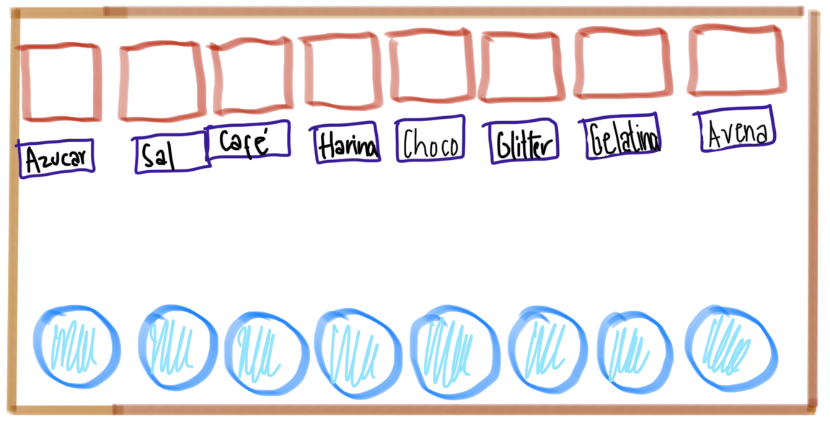 Azucar
Sal
Café
Harina
Choco
Glitter
Gelatina
Avena